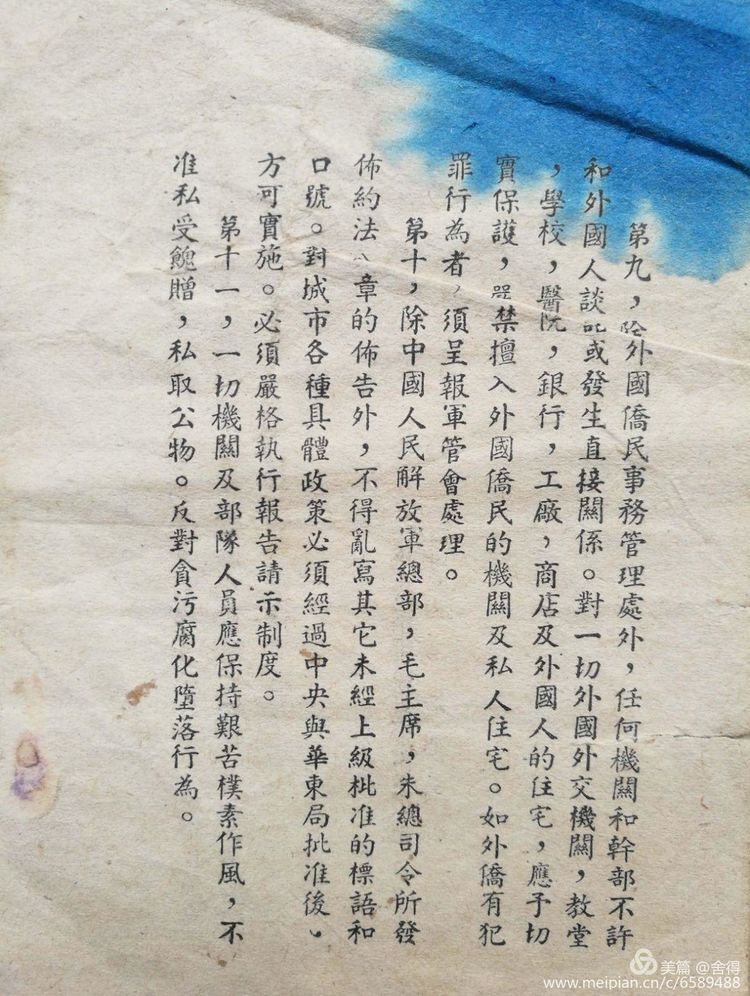 第九，除外國僑民事務管理處外，任何機關和幹部不許
和外國人談話或發生直接關係。對一切外國外交機關，教堂
，學校，醫院，銀行，工廠，商店及外國人的住宅，應予切
實保護，嚴禁擅入外國僑民的機關及私人住宅。如外僑有犯
罪行為者，須呈報軍管會處理。
第十，除中國人民解放軍總部，毛主席，朱總司令所發
佈約法八章的佈告外，不得亂寫其它未經上級枇准的標語和
口號。對城市各種具體政策必須經過中央與華東局批准後，
方可實施。必須嚴格執行報告請示制度。
第十一，一切機關及部隊人員應保持艱苦樸素作風，不
准私受餽贈，私取公物。反對貪污腐化墮落行為。
美篇 @舍得
www.meipian.cn/c/6589488